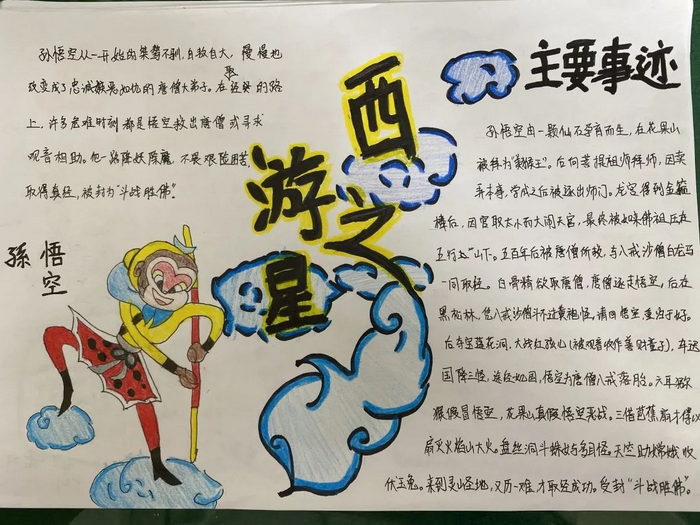 孙悟空从一开始的桀骜不驯,自救自大,慢慢也
改变成了忠诚疾恶如仇的唐僧大弟子。在取经的路
上,许多危难时刻都是悟空救出唐僧或寻求
观音相助。他一路降妖除魔,不畏艰险困苦,
取得真经,被封为“斗战胜佛”。
孫悟空
西游之星
主要事迹
孙悟空由一颗仙石孕育而生,在花果山
被拜为“美猴王”。后向菩提祖师拜师,因卖
弄本事,学成之后被逐出师门。龙宫得到金箍
棒后,因官职太小而大闹天宫,最终被如来佛祖压在
五行山”山下。五百年后被唐僧所救,与八戒沙僧白龙马
一同取经。白骨精欲取唐僧,唐僧逐走悟空,后在
黑松林,他八戒沙僧斗不过黄袍怪,请回悟空重归于好。
后夺宝莲花洞,大战红孩儿(被观音收作善财童子),车迟
国降三怪,途经女儿国,悟空为唐僧八戒落胎。六耳猕
猴假冒悟空,花果山真假悟空夹战。三借芭蕉扇才得以
扇灭火焰山大火。盘丝洞斗蜘蛛与多目怪。天竺助嫦娥收
伏玉兔。来到灵山圣地,又历一难才取经成功。受封“斗战胜佛”。